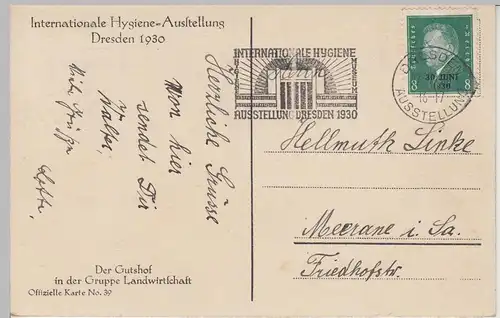 Internationale Hygiene-Ausstellung
Dresden 1930
INTERNATIONALE HYGIENE
MUSEUM
AUSSTELLUNG DRESDEN 1930
DRESDEN
30. JUNI
AUSSTELLUNG
8 8
Herzliche Grüsse
Von hier
sendet Dir
Walter
Viele Grüsse
Hellmuth Linke
Meerane i. Sa.
Friedhofstr.
Der Gutshof
in der Gruppe Landwirtschaft
Offizielle Karte No. 39